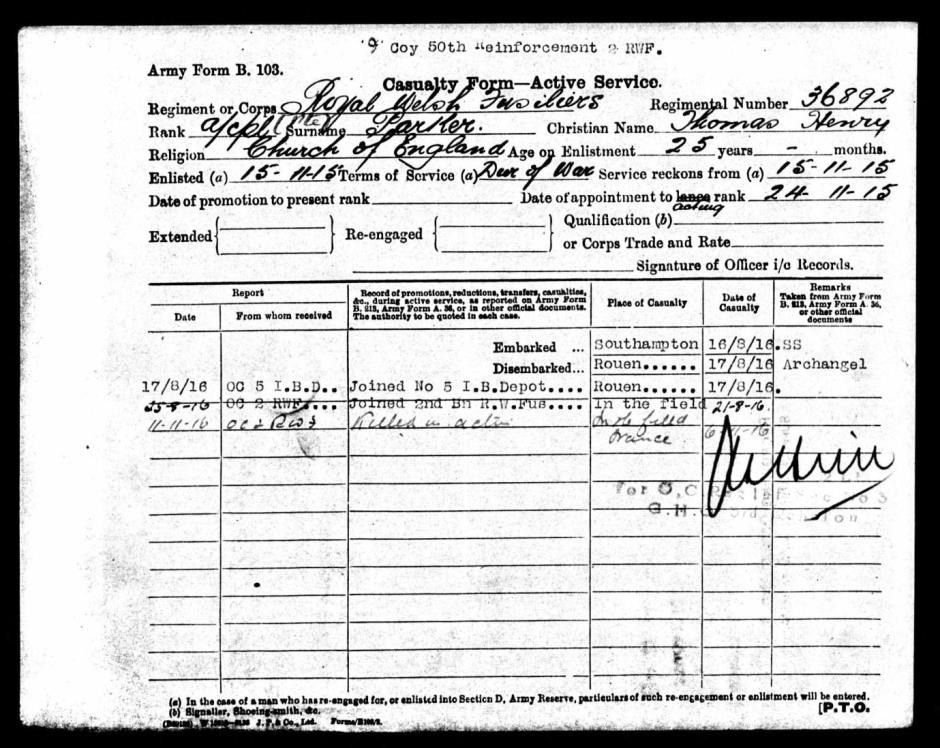 '9' Coy 50th Reinforcement 2 RWF.
Army Form B. 103.
Casualty Form—Active Service.
Regiment or Corps Royal Welsh Fusiliers Regimental Number 36892
Rank a/cpl (Pte) Surname Parker. Christian Name Thomas Henry
Religion Church of England Age on Enlistment 25 years - months.
Enlisted (a) 15-11-15 Terms of Service (a) Dur of War Service reckons from (a) 15-11-15
Date of promotion to present rank Date of appointment to lance rank 24-11-15
acting
Qualification (b)
Extended { } Re-engaged { }
or Corps Trade and Rate
Signature of Officer i/c Records.
Report
Date
From whom received
Record of promotions, reductions, transfers, casualties,
&c., during active service, as reported on Army Form
B. 213, Army Form A. 36, or in other official documents.
The authority to be quoted in each case.
Place of Casualty
Date of
Casualty
Remarks
Taken from Army Form
B. 213, Army Form A. 36,
or other official
documents
Embarked ... Southampton 16/8/16. SS
Disembarked... Rouen...... 17/8/16 Archangel
17/8/16 OC 5 I.B.D.. Joined No 5 I.B.Depot.... Rouen...... 17/8/16.
25-8-16 OC 2 RWF.... Joined 2nd Bn R.W.Fus.... In the field 21-8-16.
11-11-16 OC 2 RWF Killed in action In the field
France 6-11-16
for O.C.
G.H.Q.
(a) In the case of a man who has re-engaged for, or enlisted into Section D, Army Reserve, particulars of such re-engagement or enlistment will be entered.
(b) Signaller, Shoeing-smith, &c.
J. P. & Co., Ltd. Forms/B103/2.
[P.T.O.